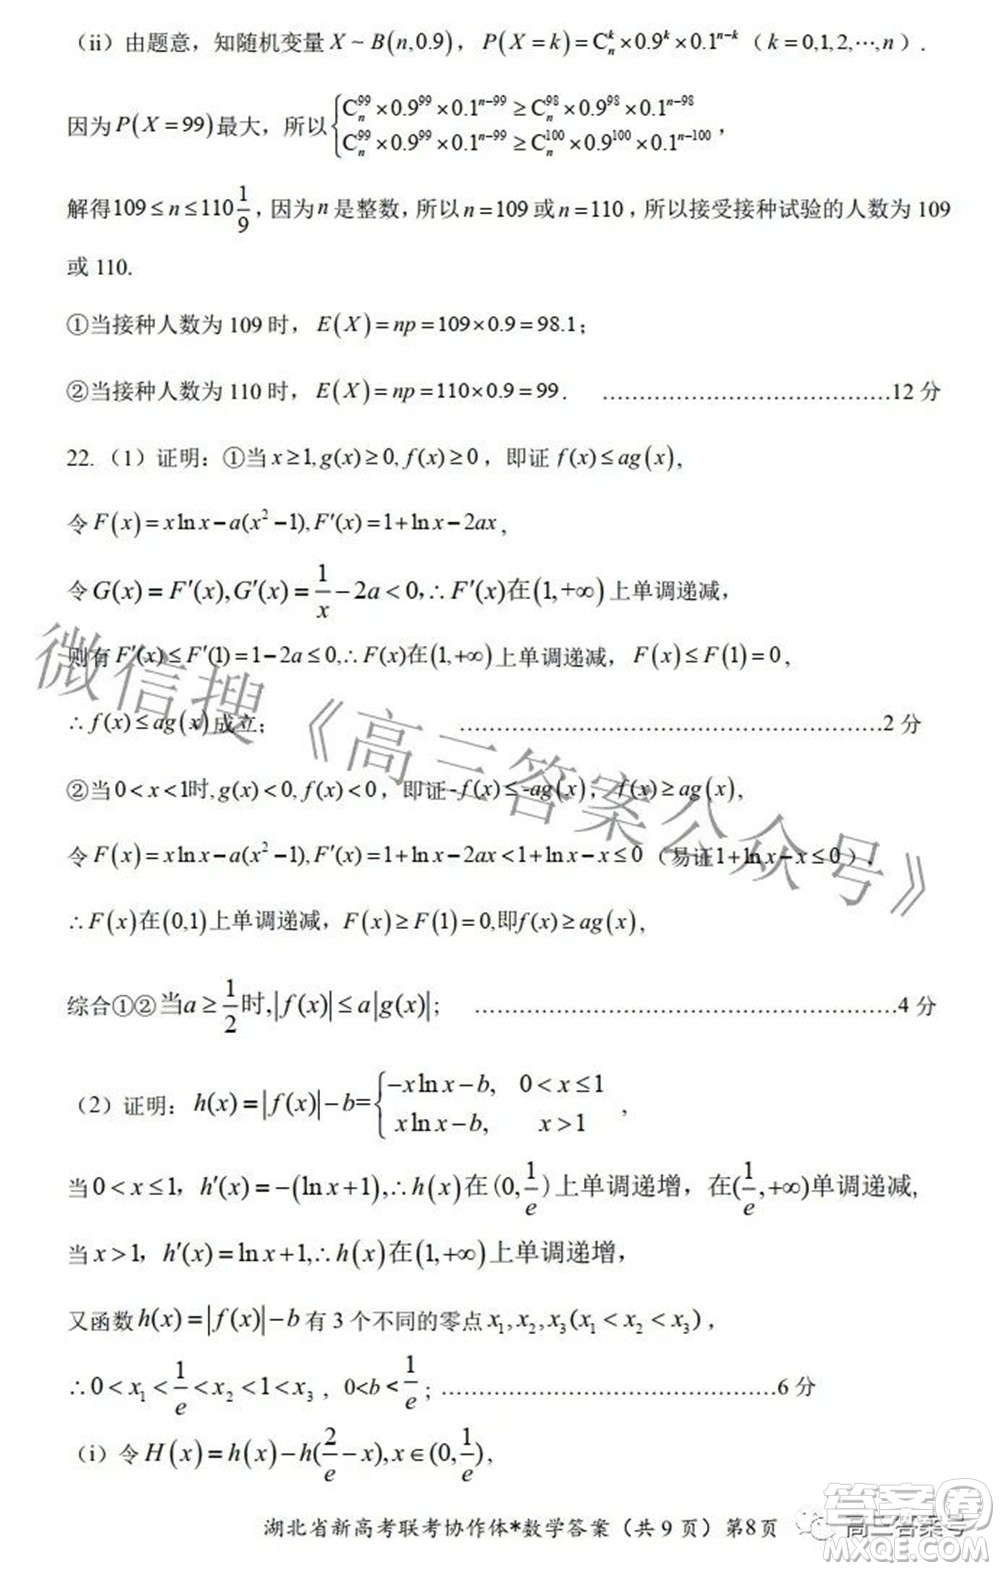 （ii）由题意，知随机变量 X ~ B(n,0.9)，P(X=k)=C_n^k×0.9^k×0.1^{n-k}（k=0,1,2,⋯,n）.
因为P(X=99)最大，所以{C_n^{99}×0.9^{99}×0.1^{n-99}≥C_n^{98}×0.9^{98}×0.1^{n-98}
C_n^{99}×0.9^{99}×0.1^{n-99}≥C_n^{100}×0.9^{100}×0.1^{n-100}，
解得109≤n≤110 1/9，因为n是整数，所以n=109或n=110，所以接受接种试验的人数为 109
或 110.
①当接种人数为 109 时，E(X)=np=109×0.9=98.1；
②当接种人数为 110 时，E(X)=np=110×0.9=99． ……………………………………12 分
22.（1）证明：①当x≥1,g(x)≥0,f(x)≥0，即证 f(x)≤ag(x),
令F(x)=xlnx-a(x²-1),F′(x)=1+lnx-2ax,
令G(x)=F′(x),G′(x)=1/x-2a<0,∴F′(x)在(1,+∞)上单调递减，
则有F′(x)≤F′(1)=1-2a≤0,∴F(x)在(1,+∞)上单调递减，F(x)≤F(1)=0,
∴f(x)≤ag(x)成立； ……………………………………………………2 分
②当0<x<1时,g(x)<0,f(x)<0，即证-f(x)≤-ag(x)，f(x)≥ag(x),
令F(x)=xlnx-a(x²-1),F′(x)=1+lnx-2ax<1+lnx-x≤0（易证1+lnx-x≤0），
∴F(x)在(0,1)上单调递减，F(x)≥F(1)=0,即f(x)≥ag(x),
综合①②当a≥1/2时,|f(x)|≤a|g(x)|; ……………………………………………………4 分
（2）证明：h(x)=|f(x)|-b={-xlnx-b, 0<x≤1
xlnx-b, x>1，
当0<x≤1，h′(x)=-(lnx+1),∴h(x)在(0,1/e)上单调递增，在(1/e,+∞)单调递减,
当x>1，h′(x)=lnx+1,∴h(x)在(1,+∞)上单调递增，
又函数h(x)=|f(x)|-b有 3 个不同的零点x₁,x₂,x₃(x₁<x₂<x₃)，
∴0<x₁<1/e<x₂<1<x₃，0<b<1/e；…………………………………………6 分
（i）令H(x)=h(x)-h(2/e-x),x∈(0,1/e),
湖北省新高考联考协作体*数学答案（共 9 页）第8页
微信搜《高三答案公众号》
高三答案号
答案卷
MXQE.COM